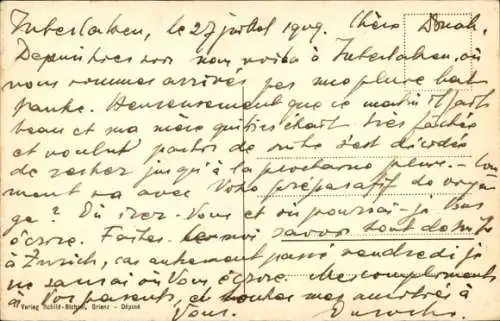 Interlaken, le 27 juillet 1909. Chère Donah,
Depuis hier soir nous voilà à Interlaken, où
nous sommes arrivés par une pluie bat
tante. Heureusement que ce matin il fait
beau et ma mère qui était très fâchée
et voulait partir de suite s'est décidée
de rester jusqu'à la prochaine pluie. - Com
ment va avec Vos préparatifs de voya
ge? Où irez-Vous et où pourrai-je Vous
écrire. Faites le moi savoir tout de suite
à Zurich, car autrement passé vendredi je
ne saurai où Vous écrire. Mes compliments
à Vos parents, et toutes mes amitiés à
Vous.
Verlag Schild-Bichsel, Brienz - Déposé